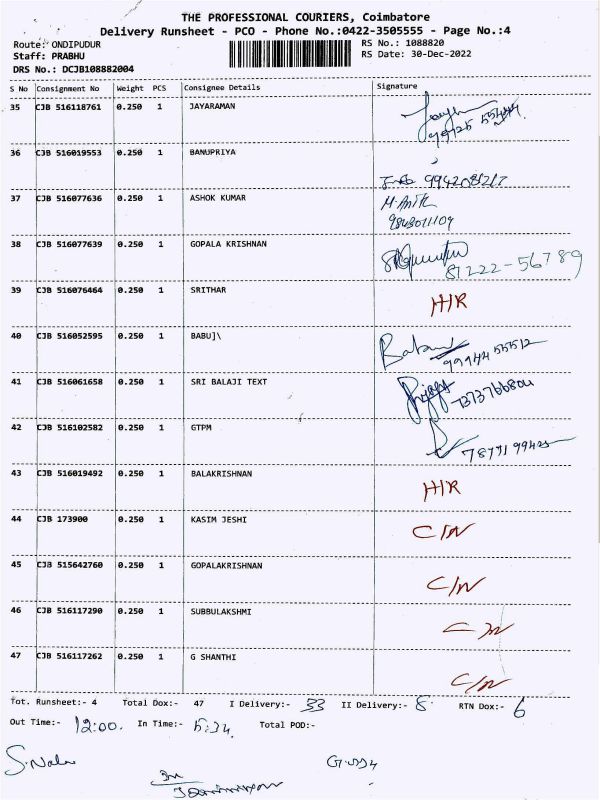 THE PROFESSIONAL COURIERS, Coimbatore
Delivery Runsheet - PCO - Phone No.:0422-3505555 - Page No.:4
Route: ONDIPUDUR RS No.: 1088820
Staff: PRABHU RS Date: 30-Dec-2022
DRS No.: DCJB108882004
S No Consignment No Weight PCS Consignee Details Signature
35 CJB 516118761 0.250 1 JAYARAMAN
36 CJB 516019553 0.250 1 BANUPRIYA
9942081217
37 CJB 516077636 0.250 1 ASHOK KUMAR
9843011109
38 CJB 516077639 0.250 1 GOPALA KRISHNAN
81222-56789
39 CJB 516076464 0.250 1 SRITHAR H/R
40 CJB 516052595 0.250 1 BABU]\
99944 55512
41 CJB 516061658 0.250 1 SRI BALAJI TEXT
7373766804
42 CJB 516102582 0.250 1 GTPM
43 CJB 516019492 0.250 1 BALAKRISHNAN H/R
44 CJB 173900 0.250 1 KASIM JESHI C/N
45 CJB 515642760 0.250 1 GOPALAKRISHNAN C/N
46 CJB 516117290 0.250 1 SUBBULAKSHMI C/N
47 CJB 516117262 0.250 1 G SHANTHI C/N
Tot. Runsheet:- 4 Total Dox:- 47 I Delivery:- 33 II Delivery:- 8 RTN Dox:- 6
Out Time:- 12:00. In Time:- Total POD:-